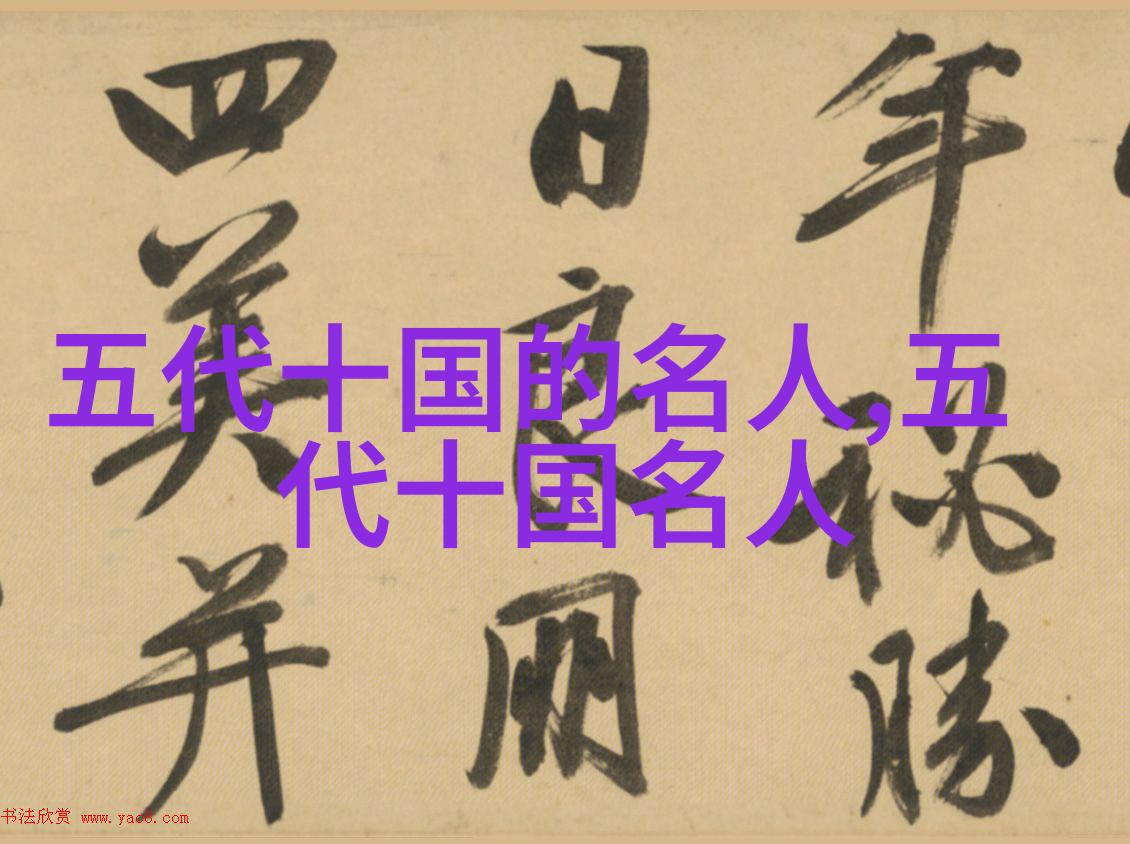 五代十国的名人,五
代十国名人
年秘勝
日良朋
四美并
书法欣赏 www.yac8.com